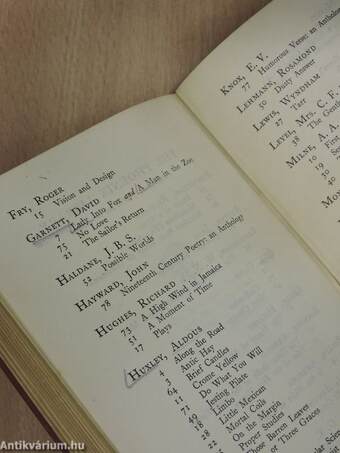 FRY, ROGER
15 Vision and Design
GARNETT, DAVID
7 Lady Into Fox and A Man in the Zoo
75 No Love
21 The Sailor's Return
HALDANE, J. B. S.
52 Possible Worlds
HAYWARD, JOHN
78 Nineteenth Century Poetry: an Anthology
HUGHES, RICHARD
73 A High Wind in Jamaica
51 A Moment of Time
17 Plays
HUXLEY, ALDOUS
4 Along the Road
3 Antic Hay
64 Brief Candles
Crome Yellow
Do What You Will
11 Jesting Pilate
71 Limbo
49 Little Mexican
18 Mortal Coils
28 On the Margin
22 Proper Studies
25 Those Barren Leaves
or Three Graces
KNOX, E. V.
77 Humorous Verse: an Antholog
LEHMANN, ROSAMOND
50 Dusty Answer
LEWIS, WYNDHAM
27 Tarr
LEVEL, MRS. C. F.
38 The Gentl
MILNE, A. A.
10 First
If
antikvárium.hu